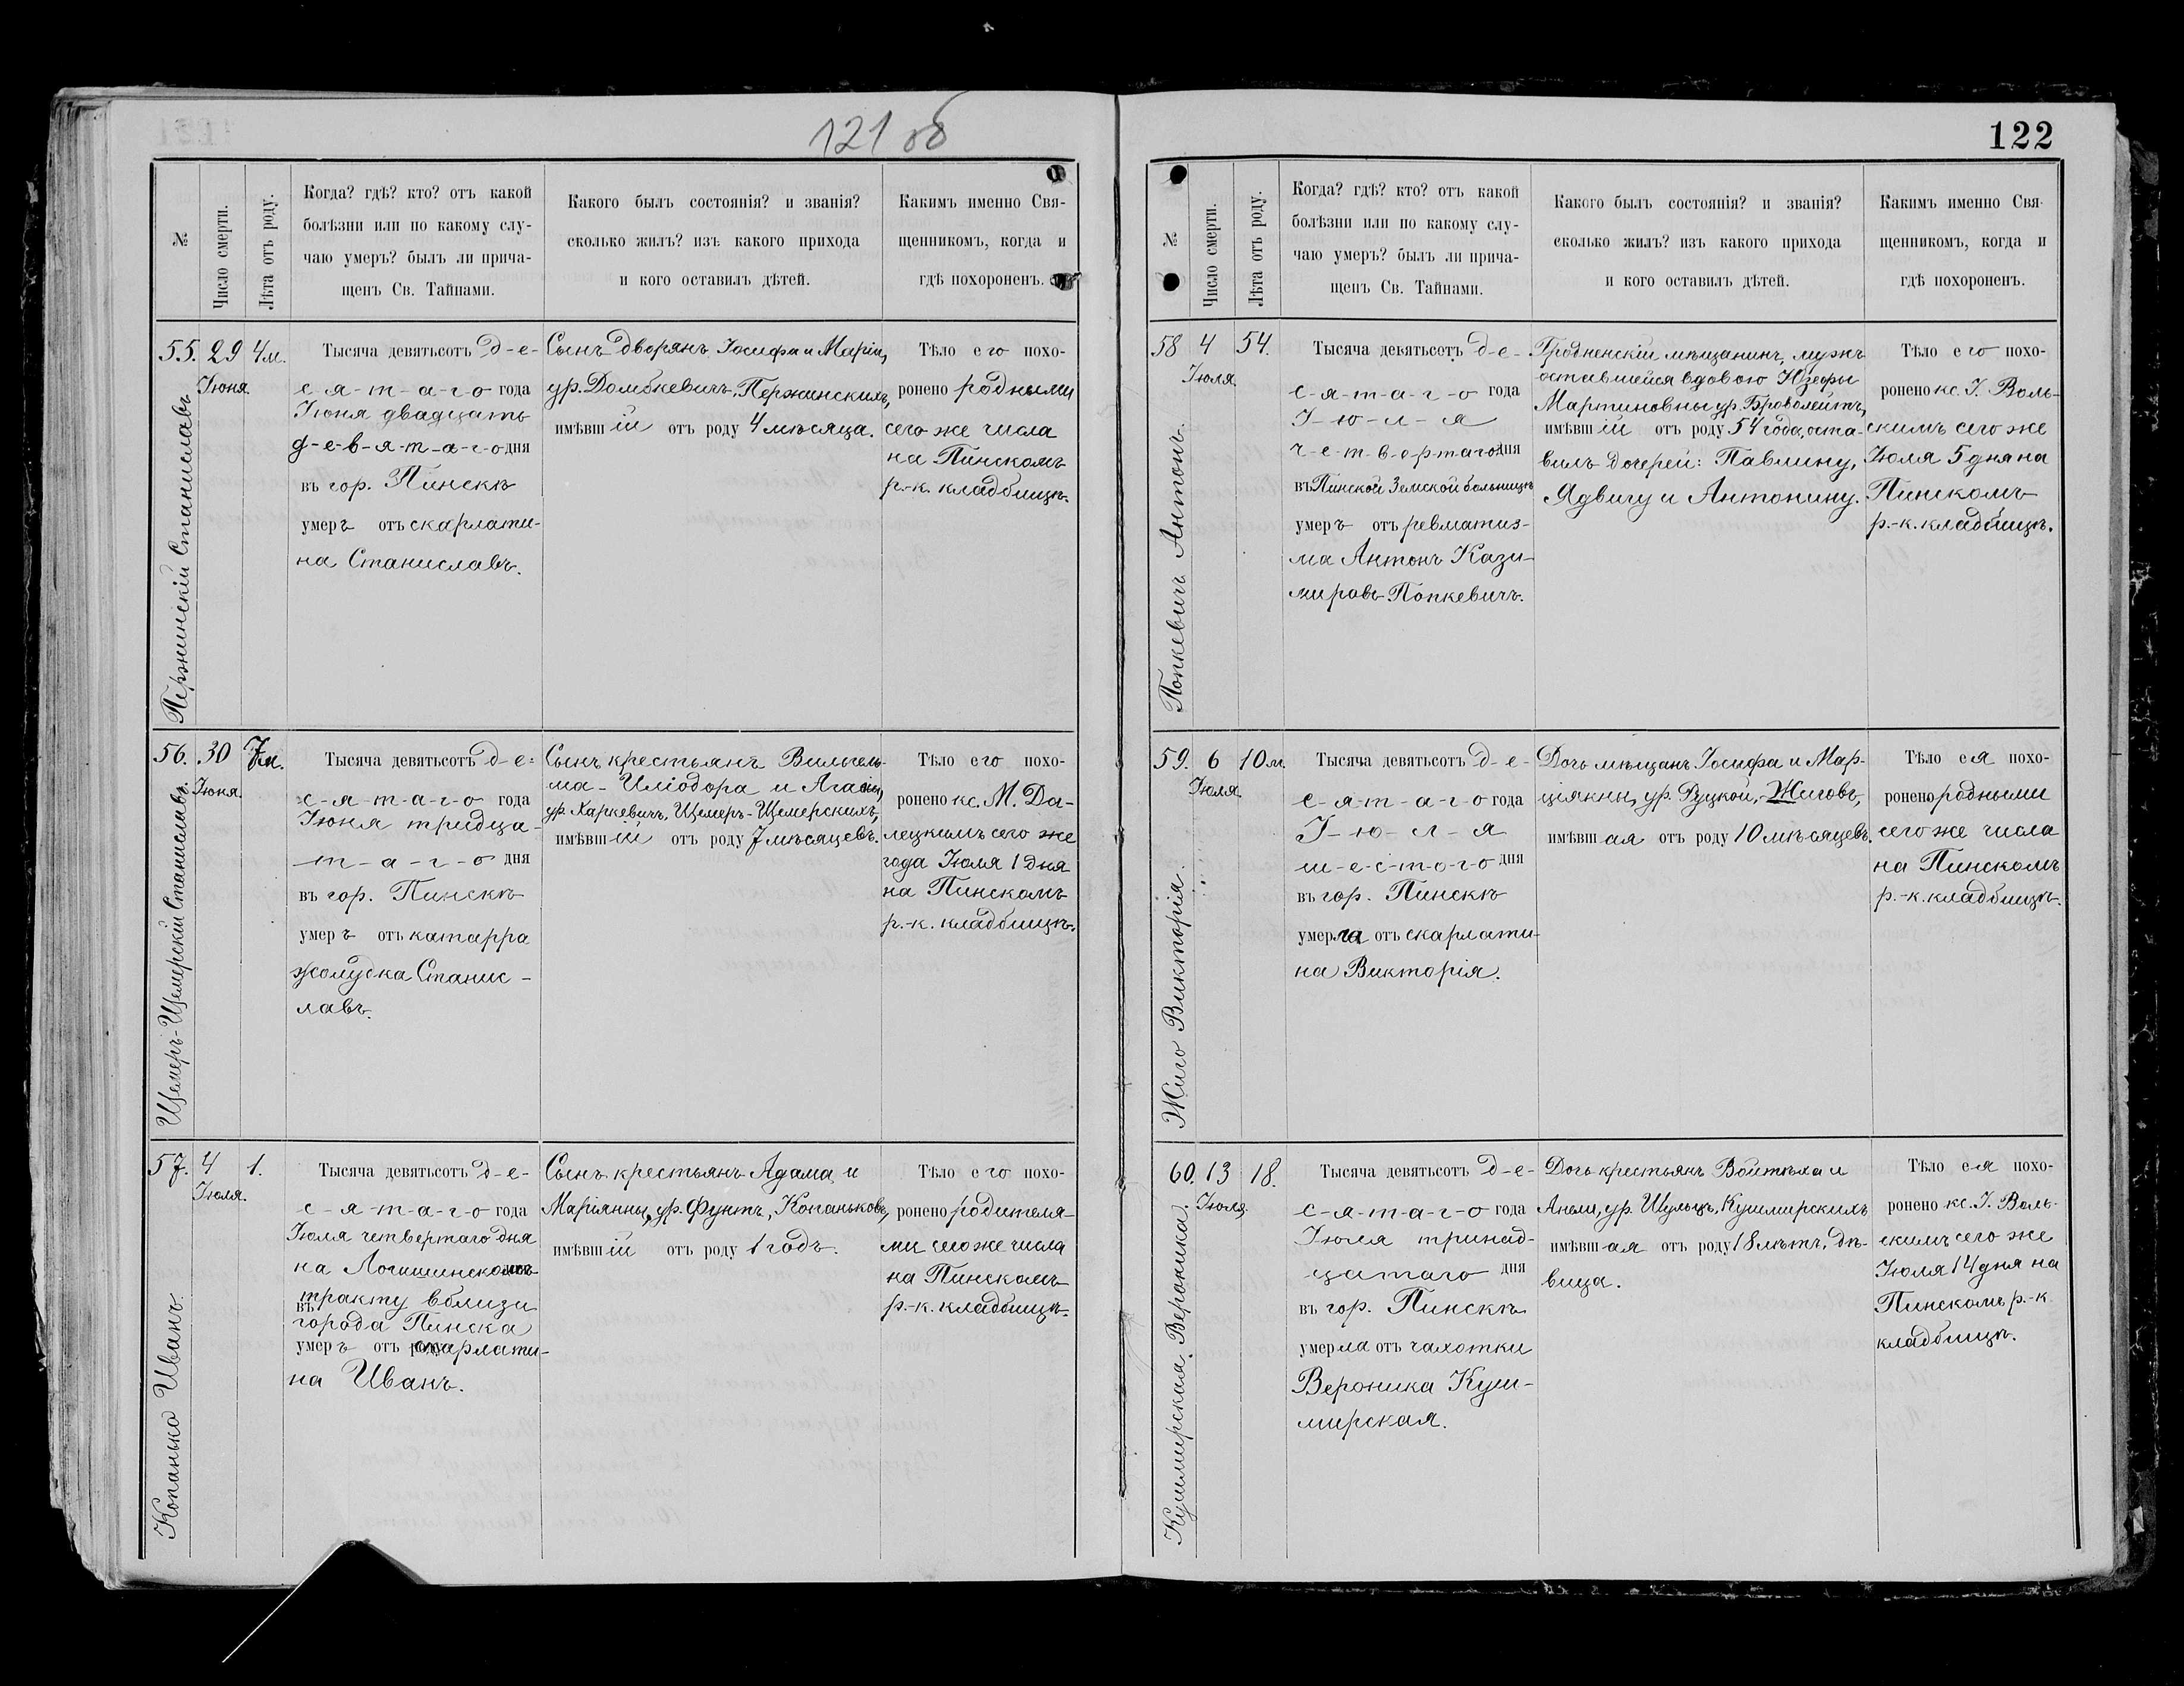 121 об
№
Число смерти.
Лѣта отъ роду.
Когда? гдѣ? кто? отъ какой
болѣзни или по какому слу-
чаю умеръ? былъ ли прича-
щенъ Св. Тайнами.
Какого былъ состоянія? и званія?
сколько жилъ? изъ какого прихода
и кого оставилъ дѣтей.
Какимъ именно Свя-
щенникомъ, когда и
гдѣ похороненъ.
55. 29 4 м.
Іюня.
Пержинскій Станиславъ
Тысяча девятьсотъ д-е-
с-я-т-а-г-о года
Іюня двадцать
д-е-в-я-т-а-г-о дня
въ гор. Пинскѣ
умеръ отъ скарлати-
на Станиславъ.
Сынъ дворянъ Іосифа и Маріи,
ур. Домбкевичъ, Пержинскихъ,
имѣвшій отъ роду 4 мѣсяца.
Тѣло его похо-
ронено родными
сего же числа
на Пинскомъ
р.-к. кладбищѣ.
56. 30 7 м.
Іюня.
Щемеръ-Щемерскій Станиславъ.
Тысяча девятьсотъ д-е-
с-я-т-а-г-о года
Іюня тридца-
т-а-г-о дня
въ гор. Пинскѣ
умеръ отъ катарра
желудка Станис-
лавъ.
Сынъ крестьянъ Вильгель-
ма-Иліодора и Агафіи,
ур. Харкевичъ, Щемеръ-Щемерскихъ,
имѣвшій отъ роду 7 мѣсяцевъ.
Тѣло его похо-
ронено кс. М. Да-
лецкимъ сего же
года Іюля 1 дня
на Пинскомъ
р.-к. кладбищѣ.
57. 4 1.
Іюля.
Копанько Иванъ
Тысяча девятьсотъ д-е-
с-я-т-а-г-о года
Іюля четвертаго дня
на Логишинскомъ
тракту вблизи
въ
города Пинска
умеръ отъ скарлати-
на Иванъ.
Сынъ крестьянъ Адама и
Маріянны, ур. Фунтъ, Копаньковъ,
имѣвшій отъ роду 1 годъ.
Тѣло его похо-
ронено родителя-
ми сего же числа
на Пинскомъ
р.-к. кладбищѣ.
122
№
Число смерти.
Лѣта отъ роду.
Когда? гдѣ? кто? отъ какой
болѣзни или по какому слу-
чаю умеръ? былъ ли прича-
щенъ Св. Тайнами.
Какого былъ состоянія? и званія?
сколько жилъ? изъ какого прихода
и кого оставилъ дѣтей.
Какимъ именно Свя-
щенникомъ, когда и
гдѣ похороненъ.
58 4 54.
Іюля.
Попкевичъ Антонъ.
Тысяча девятьсотъ д-е-
с-я-т-а-г-о года
І-ю-л-я
ч-е-т-в-е-р-таго дня
въ Пинской Земской больницѣ
умеръ отъ ревматиз-
ма Антонъ Кази-
мировъ Попкевичъ.
Гродненскій мѣщанинъ, мужъ
оставшейся вдовою Юзефы
Мартиновны ур.
имѣвшій отъ роду 54 года, оста-
вилъ дочерей: Павлину,
Ядвигу и Антонину.
Тѣло его похо-
ронено кс. І. Воль-
скимъ сего же
Іюля 5 дня на
Пинскомъ
р.-к. кладбищѣ.
59. 6 10 м.
Іюля.
Жиго Викторія.
Тысяча девятьсотъ д-е-
с-я-т-а-г-о года
І-ю-л-я
ш-е-с-т-о-г-о дня
въ гор. Пинскѣ
умерла отъ скарлати-
на Викторія.
Дочь мѣщанъ Іосифа и Мар-
ціянны, ур. Руцкой, Жиговъ,
имѣвшая отъ роду 10 мѣсяцевъ.
Тѣло ея похо-
ронено родными
сего же числа
на Пинскомъ
р.-к. кладбищѣ.
60. 13 18.
Іюля.
Кушмирская Вероника.
Тысяча девятьсотъ д-е-
с-я-т-а-г-о года
Іюля тринад-
цатаго дня
въ гор. Пинскѣ
умерла отъ чахотки
Вероника Куш-
мирская.
Дочь крестьянъ Войтѣха и
Анели, ур. Шульцъ, Кушмирскихъ
имѣвшая отъ роду 18 лѣтъ, дѣ-
вица.
Тѣло ея похо-
ронено кс. І. Воль-
скимъ сего же
Іюля 14 дня на
Пинскомъ р.-к
кладбищѣ.